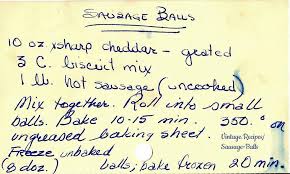 SAUSAGE BALLS
10 oz xsharp cheddar - grated
3 C. biscuit mix
1 lb. hot sausage (uncooked)
Mix together. Roll into small
balls. Bake 10-15 min. 350° on
ungreased baking sheet.
Vintage Recipes/
Sausage Balls
Freeze unbaked
(8 doz.) balls; bake frozen 20 min.